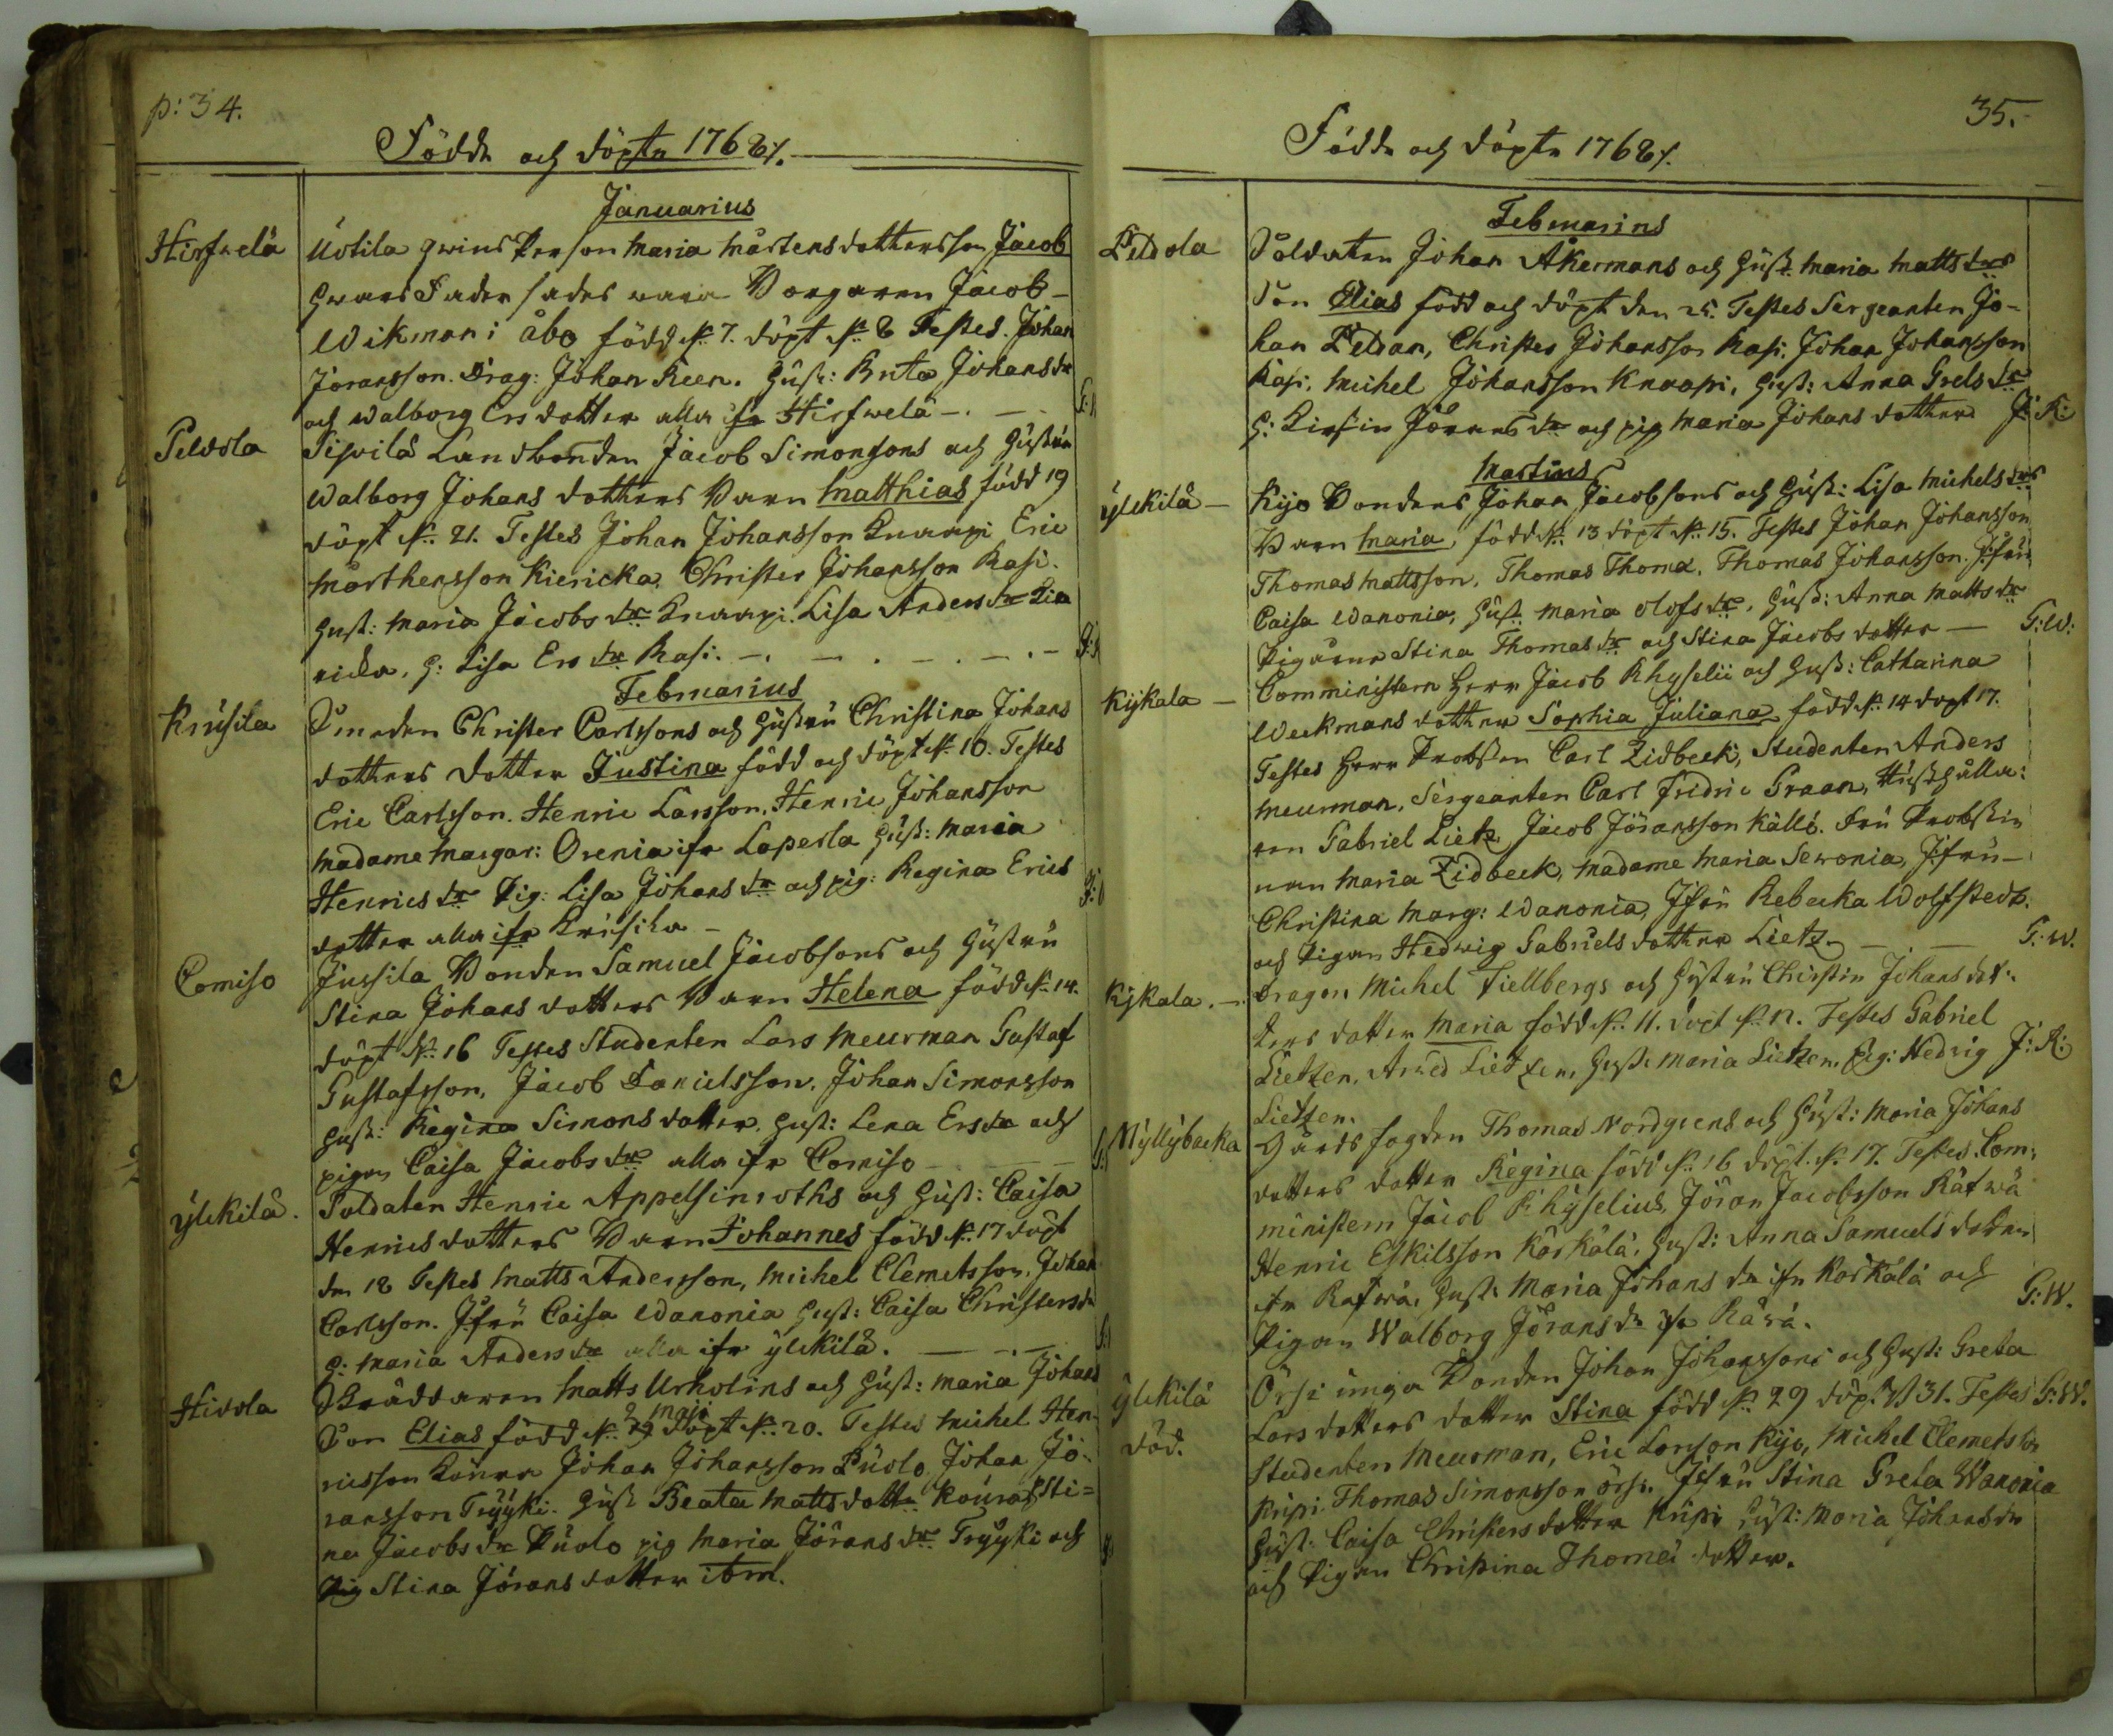 p: 34.
Födde och döpte 1768 /.
Januarius
Hirfwelä
Uotila qwins Person Maria Mårtens dotters son Jacob
hwars Fader sades wara Borgaren Jacob
Wikman i Åbo född d. 7. döpt d. 8 Testes. Johan
Joransson. Drag: Johan Reen. Hust: Brita Johans dr
och Walborg Ers dotter alla ifr Hirfwelä
Peldola
Sipilä Landbonden Jacob Simonsons och Hustrun
Walborg Johans dotters Barn Matthias född 19
döpt d. 21. Testes Johan Johansson Knaapi Eric
Mårthensson Kiericka, Christer Johansson Rasi.
Hust: Maria Jacobs dr Knaapi. Lisa Anders dr Kie
ricka, H: Lisa Ers dr Rasi.
Februarius
Kruusila
Smeden Christer Carlssons och Hustru Christina Johans
dotters dotter Justina född och döpt d. 10. Testes
Eric Carlsson. Henric Larsson, Henric Johansson
Madame Margar: Orenia ifr Laperla Hust: Maria
Henrics dr Pig: Lisa Johans dr och pig: Regina Erics
dotter alla ifr Krusila
Comiso
Jussila Bonden Samuel Jacobsons och Hustru
Stina Johans dotters Barn Helena född d. 14.
döpt d. 16 Testes Studenten Lars Meurman Gustaf
Gustafsson, Jacob Danielsson, Johan Simonsson
Hust: Regina Simons dotter. Hust: Lena Ers dr och
pigan Caisa Jacobs dr alla ifr Comiso
ylikilä.
Soldaten Henric Appelsinroths och Hust: Caisa
Henrics dotters Barn Johannes född d. 17 döpt
den 18 Testes Matts Andersson, Michel Clemetsson, Johan
Carlsson. Jfru Caisa Wanonia Hust: Caisa Christers dr
H: Maria Anders dr alla ifr ylikilä.
Hidola
Skräddaren Matts Urholins och Hust: Maria Johans
2 Maji
Son Elias född d. döpt d. 20. Testes Michel Hen-
ricsson Johan Johansson Puolo, Johan Jö-
ransson Tryyki. Hust Beata Matts dottr Sti-
na Jacobs dr Puolo pig Maria Jörans dr Tryyki och
Pig Stina Jörans dotter ibm.
35.
Födde och döpte 1768 /.
Februarius
Peldola
Soldaten Johan Åkermans och Hust. Maria Matts drs
Son Elias född och döpt den 25. Testes Sergeanten Jo-
han Peldan, Christer Johansson Rasi. Johan Johansson
Rasi, Michel Johansson Knaapi, Hust: Anna Grels dr
H: Kirstin Jörans dr och pig Maria Johans dotter J: R:
Martius
ylikilä
Kijo Bondens Johan Jacobsons och Hust: Lisa Michels drs
Barn Maria, född d. 13 döpt d. 15. Testes Johan Johansson
Thomas Mattsson, Thomas Thomæ, Thomas Johansson. Jfru
Caisa Wanonia, Hust: Maria Olofs dr, Hust: Anna Matts dr
Pigorne Stina Thomas dr och Stina Jacobs dotter G: W:
Kijkala
Comministern Herr Jacob Rhyselii och Hust: Catharina
Weckmans dotter Sophia Juliana född d. 14 döpt 17.
Testes Herr Probsten Carl Zidbeck, Studenten Anders
Meurman, Sergeanten Carl Fridric Graan, Hushålla:
ren Gabriel Lietz Jacob Jöransson Källi. Fru Probstin
nan Maria Zidbeck, Madame Maria Seronia, Jfru
Christina Marg: Wanonia, Jfru Rebecka Wolfstedt.
och Pigan Hedwig Gabriels dotter Lietz. G: W.
Kijkala.
Dragon Michel Fiellbergs och Hustru Christin Johans dot:
ters dotter Maria född d. 11. döpt d. 12. Testes Gabriel
Lietzen, Arwed Lietzen, Hust: Maria Lietzen, Pig: Hedvig J: R:
Lietzen.
Myllybacka
Gårds fogden Thomas Nordgrens och Hust: Maria Johans
dotters dotter Regina född d. 16 döpt. d. 17. Testes. Com:
ministern Jacob Rhyselius, Jöran Jacobsson Räfwä
Henric Eskilsson Kårkälä, Hust: Anna Samuels dotter
ifr Räfwä, Hust: Maria Johans dr ifr Korkälä och
Pigan Walborg Jörans dr ifr Räwä. G: W.
ylikilä
död.
Örsi unga Bonden Johan Johanssons och Hust: Greta
Lars dotters dotter Stina född d. 29 döpt. d 31. Testes G: W.
Studenten Meurman, Eric Larsson Kijo, Michel Clemetsson
Krupi Thomas Simonsson örsi. Jfru Stina Greta Wanonia
Hust: Caisa Christers dotter Krupi Hust: Maria Johans dr
och Pigan Christina Thomæ dotter.